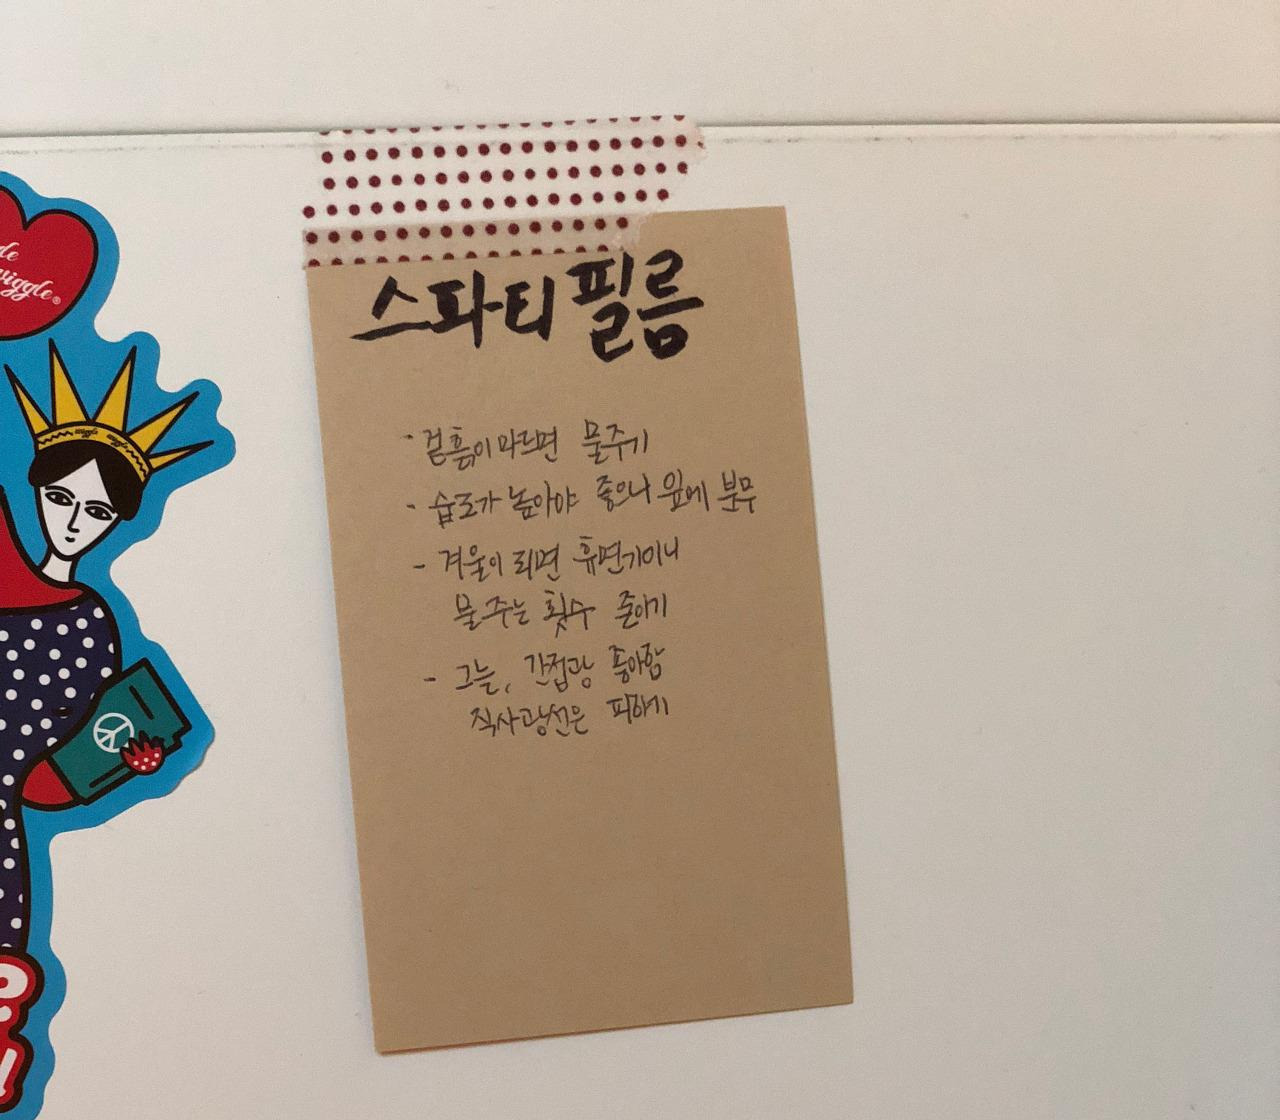 스파티필름
- 겉흙이 마르면 물주기
- 습도가 높아야 좋으니 잎에 분무
- 겨울이 되면 휴면기이니
물 주는 횟수 줄이기
- 그늘, 간접광 좋아함
직사광선은 피하기
wiggle wiggle
wiggle®